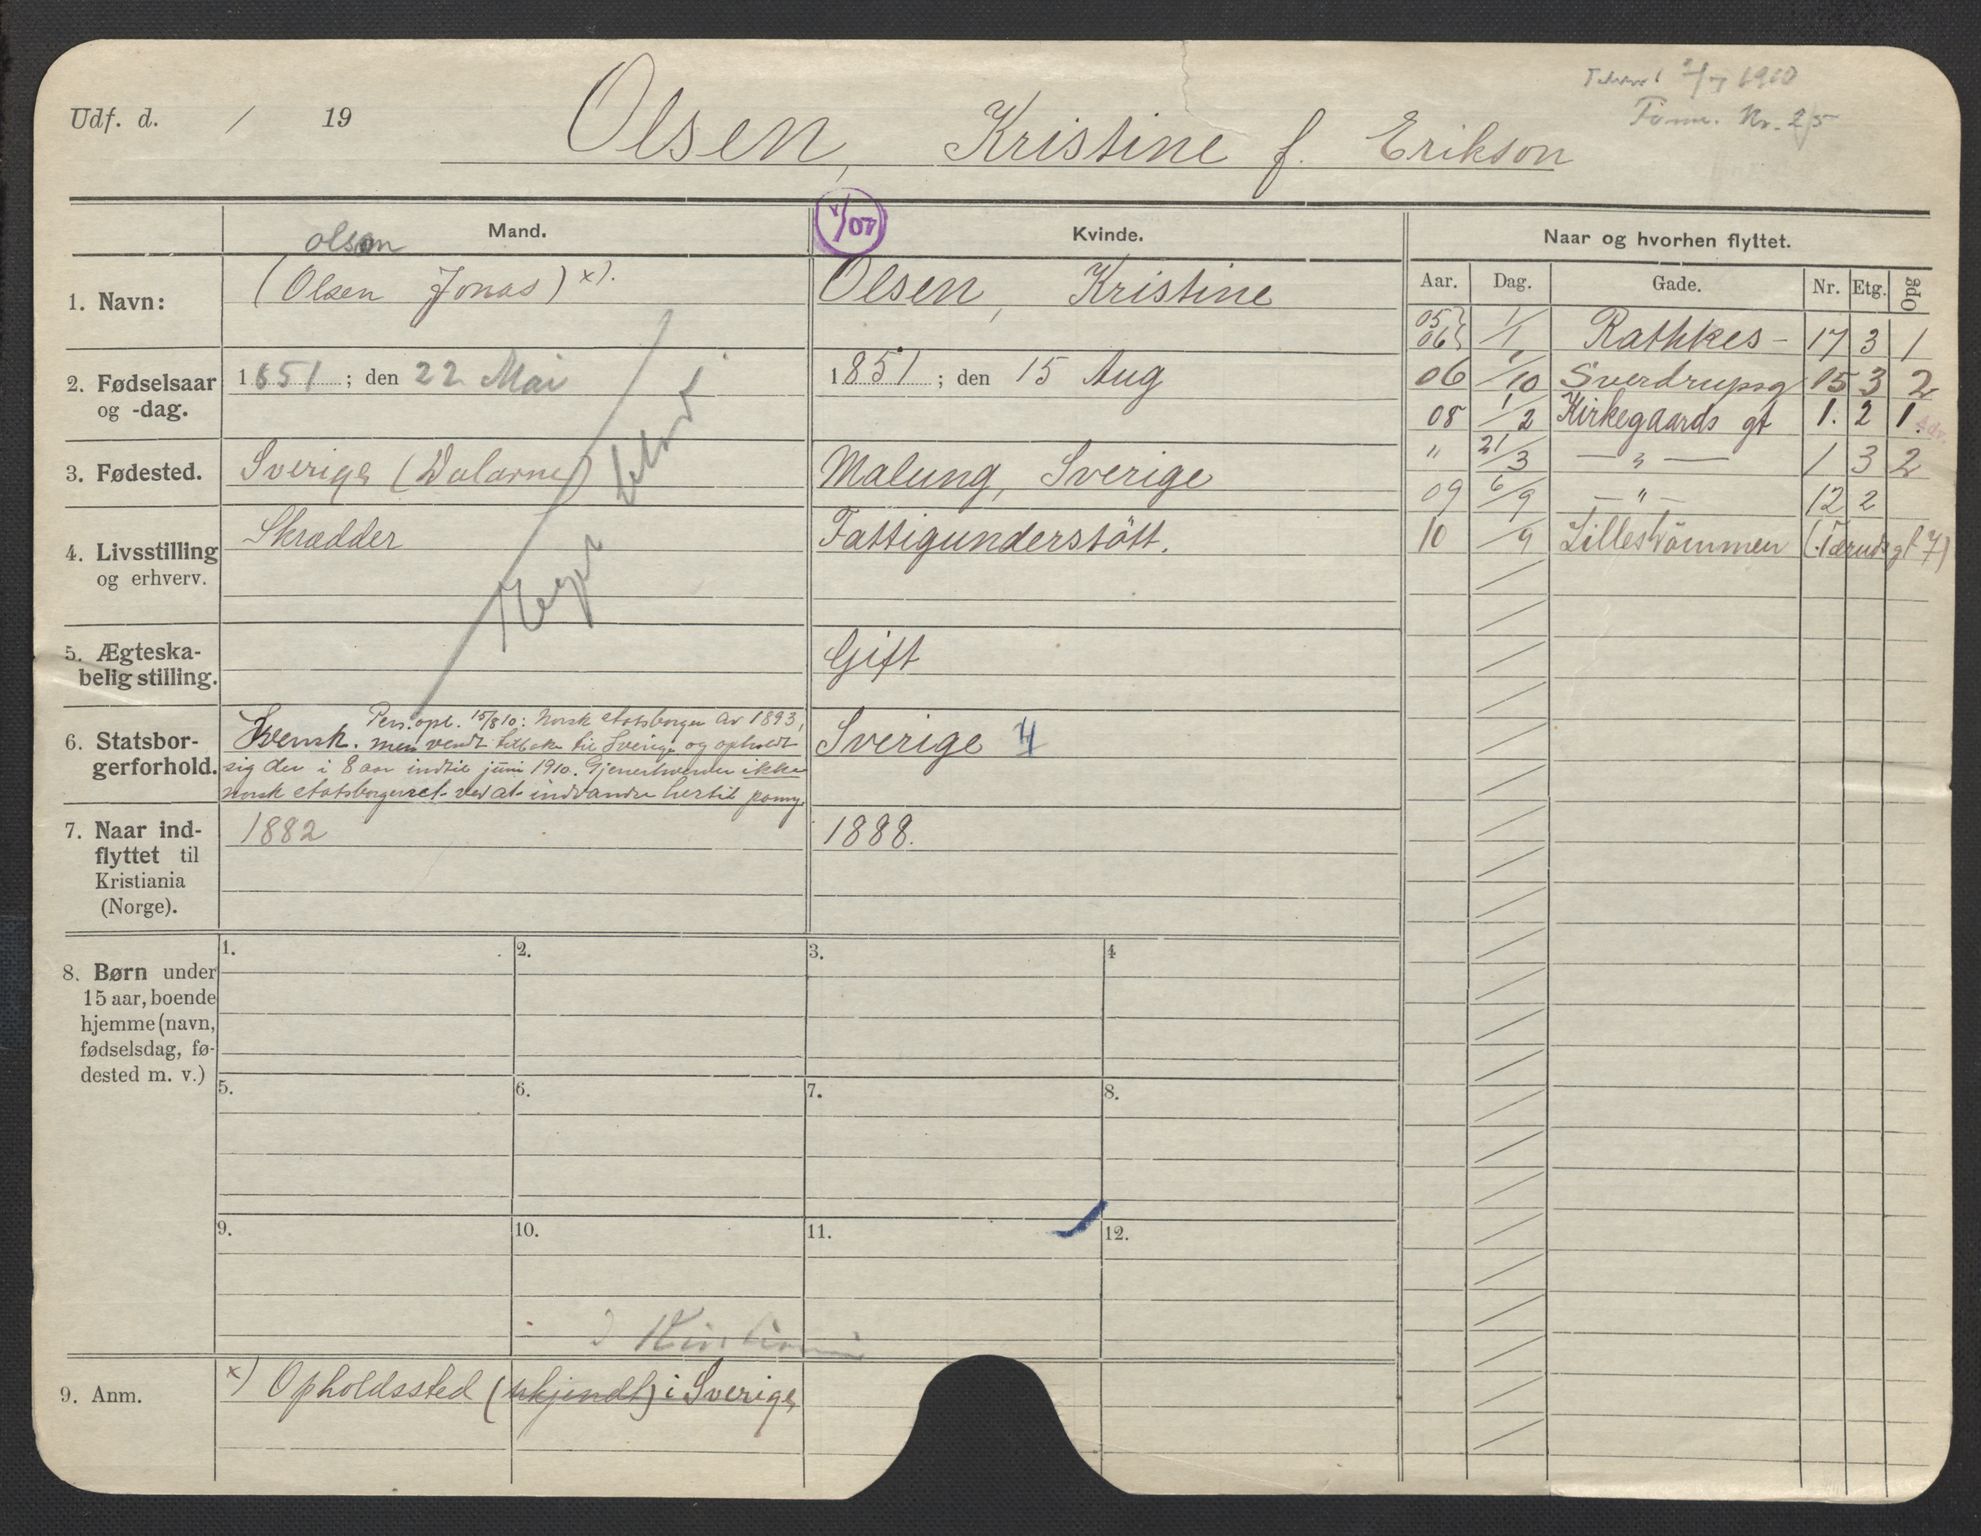 Udf. d. / 19
Olsen, Kristine f. Erikson
1910
Nr. 25
Mand.
Kvinde.
Naar og hvorhen flyttet.
1/07
olsen
1. Navn:
(Olsen Jonas) x).
Olsen, Kristine
Aar. Dag. Gade. Nr. Etg. Opg
05 06 1/1 Rathkes- 17 3 1
06 1/10 Sverdrupsg 15 3 2
08 1/2 Kirkegaards gt 1. 2 1.
Adv.
" 21/3 — " — 1 3 2
09 6/9 — " — 12 2
10 /9 Lillestrømmen
2. Fødselsaar
og -dag.
1851; den 22 Mai
1851; den 15 Aug
3. Fødested.
Sverige (Dalarne)
Malung, Sverige
4. Livsstilling
og erhverv.
Skrædder
Fattigunderstøtt.
5. Ægteska-
belig stilling.
Gift
6. Statsbor-
gerforhold.
Svensk. Pers. opl. 15/8 10: Norsk statsborger av 1893,
men vendt tilbake til Sverige og opholdt
sig der i 8 aar indtil juni 1910. Gjenerhverver ikke
norsk statsborgerret ved at indvandre hertil paany.
Sverige 4
7. Naar ind-
flyttet til
Kristiania
(Norge).
1882
1888.
8. Børn under
15 aar, boende
hjemme (navn,
fødselsdag, fø-
dested m. v.)
1. 2. 3. 4
5. 6. 7. 8.
9. 10. 11. 12.
9. Anm.
x) Opholdssted (ukjendt) i Sverige